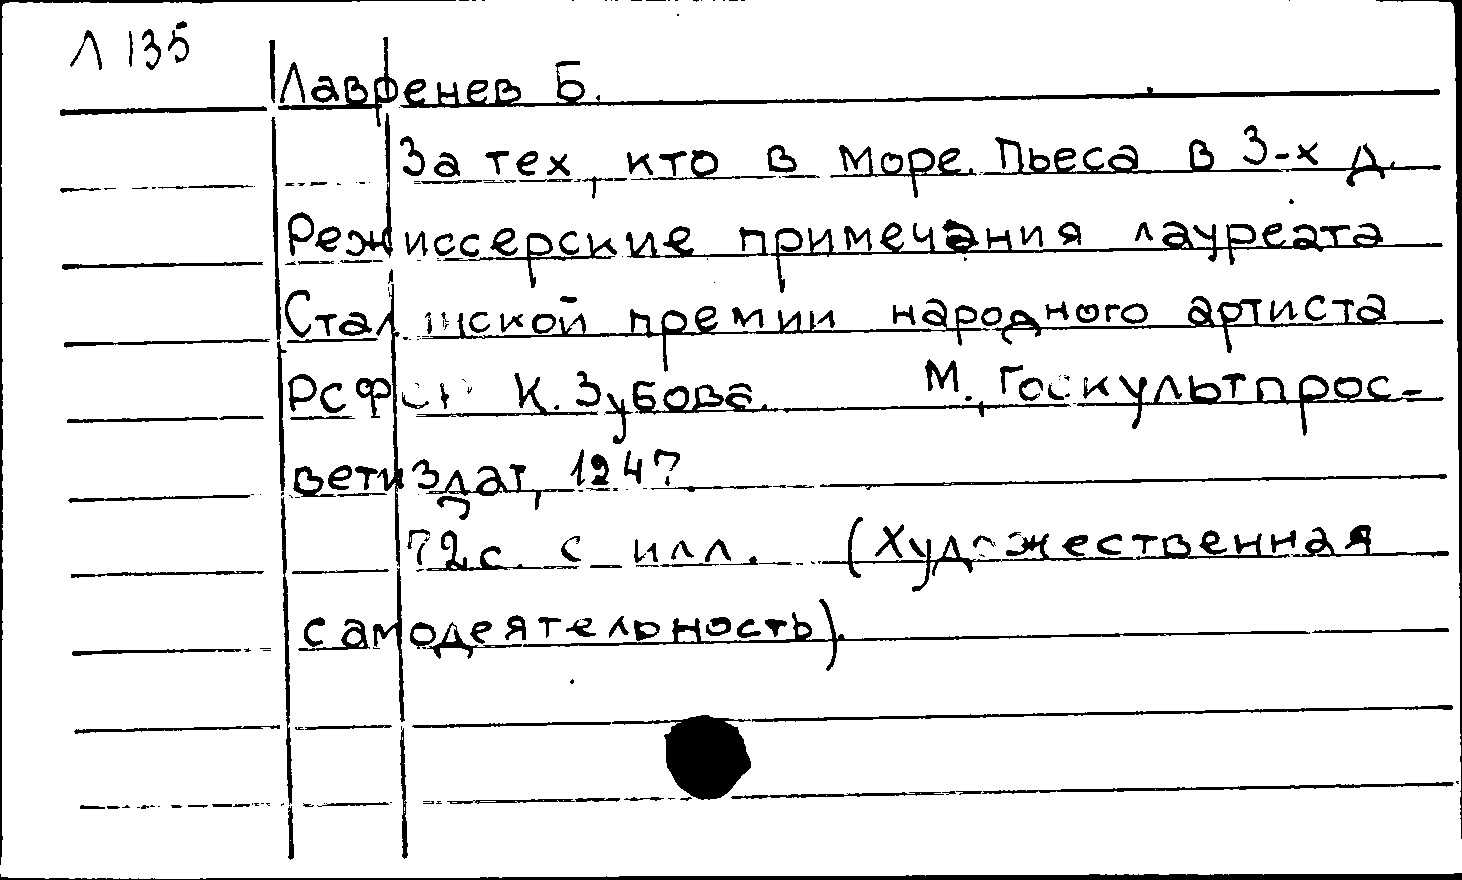 Л 135
Лавренев Б.
За тех, кто в море. Пьеса в 3-х д.
Режиссерские примечания лауреата
Сталинской премии народного артиста
РСФСР К. Зубова. М., Госкультпрос-
ветиздат, 1947.
72 с. с илл. (Художественная
самодеятельность).